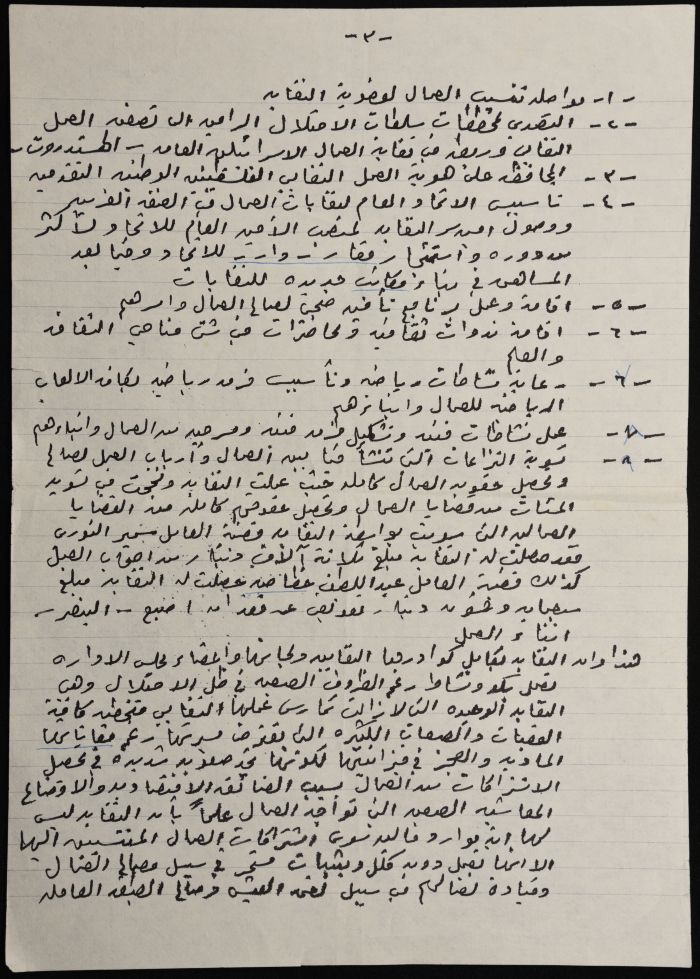 -٣-
-١- مواصلة تنسيب العمال لعضوية النقابه
-٢- التصدي لمخططات سلطات الاحتلال الراميه الى تصفية العمل
النقابي وربطه في نقابة العمال الاسرائيليه العامه - الهستدروت -
-٣- المحافظه على هوية العمل النقابي الفلسطيني الوطنيه التقدميه
-٤- تأسيس الاتحاد العام لنقابات العمال في الضفه الغربيه
ووصول امين سر النقابه لمنصب الأمين العام للاتحاد ولأكثر
من دوره واستئجار مقار للاتحاد وفيما بعد
المساهمه في بناء مكاتب جديده للنقابات
-٥- اقامة وعمل برنامج تأمين صحي لصالح العمال واسرهم
-٦- اقامة ندوات ثقافيه ومحاضرات في شتى مناحي الثقافه
والعلم
-٦- رعاية نشاطات رياضيه وتأسيس فرقه رياضيه لكافة الالعاب
الرياضيه للعمال وابنائهم
-٧- عمل نشاطات فنيه وتشكيل فرقه فنيه ومسرحيه من العمال وابناءهم
-٨- تسوية النزاعات التي تنشأ فيما بين العمال وأرباب العمل لصالح
وتحصيل حقوق العمال كامله حيث عملت النقابه ونجحت في تسوية
المئات من قضايا العمال وتحصيل حقوقهم كامله ومن القضايا
العماليه التي سويت بواسطة النقابه قضية العامل سمير النوري
فقد حصلت له النقابه مبلغ ثلاثة آلاف دينار من اصحاب العمل
كذلك قضية العامل عبد اللطيف حصلت له النقابه مبلغ
سبعمايه وخمسون دينار تعويض عن فقدان اصبع - البنصر -
اثناء العمل
هذا وان النقابه بكامل كوادرها النقابيه ولجانها واعضاء مجلس الاداره
تعمل بكد ونشاط رغم الظروف الصعبه في ظل الاحتلال وهي
النقابه الوحيده التي لازالت تمارس عملها النقابي متخطية كافة
العقبات والصعاب الكثيره التي تعترض مسيرتها رغم
الماديه والعجز في ميزانيتها لكونها تجد صعوبه شديده في تحصيل
الاشتراكات من العمال بسبب الضائقه الاقتصاديه والاوضاع
المعاشيه الصعبه التي تواجه العمال علماً بأن النقابه ليس
لها اية موارد ماليه سوى اشتراكات العمال المنتسبين اليها
الا انها تعمل دون كلل وبثبات مستمر في سبيل مصالح العمال
وقيادة نضالهم في سبيل لقمة العيش ومصالح الطبقه العامله